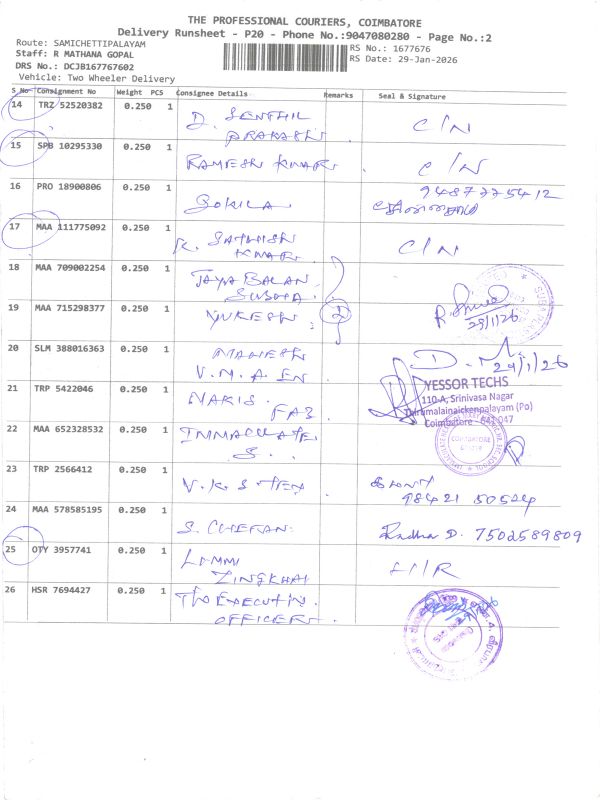 THE PROFESSIONAL COURIERS, COIMBATORE
Delivery Runsheet - P20 - Phone No.:9047080280 - Page No.:2
Route: SAMICHETTIPALAYAM
Staff: R MATHANA GOPAL
RS No.: 1677676
DRS No.: DCJB167767602
RS Date: 29-Jan-2026
Vehicle: Two Wheeler Delivery
S No Consignment No Weight PCS Consignee Details Remarks Seal & Signature
14 TRZ 52520382 0.250 1 D. SENTHIL C/N
PRAKASH
15 SPB 10295330 0.250 1 RAMESH KUMAR C/N
16 PRO 18900806 0.250 1 GOKILA 9487775412
17 MAA 111775092 0.250 1 K. SATHISH C/N
KUMAR
18 MAA 709002254 0.250 1 JAYA BALAN
SUBHA
19 MAA 715298377 0.250 1 MUKESH 2
29/1/26
20 SLM 388016363 0.250 1 MAHESH
V.M.A. EN
29/1/26
21 TRP 5422046 0.250 1 HARIS. FAB
YESSOR TECHS
110-A, Srinivasa Nagar
Thirumalainaickenpalayam (Po)
Coimbatore - 641 047
22 MAA 652328532 0.250 1 IMMACULATE
S.
COIMBATORE
23 TRP 2566412 0.250 1 V.K.S TEX
98421 50524
24 MAA 578585195 0.250 1 S. CHERAN Radha D. 7502589809
25 OTY 3957741 0.250 1
26 HSR 7694427 0.250 1 THE EXECUTIVE
OFFICER